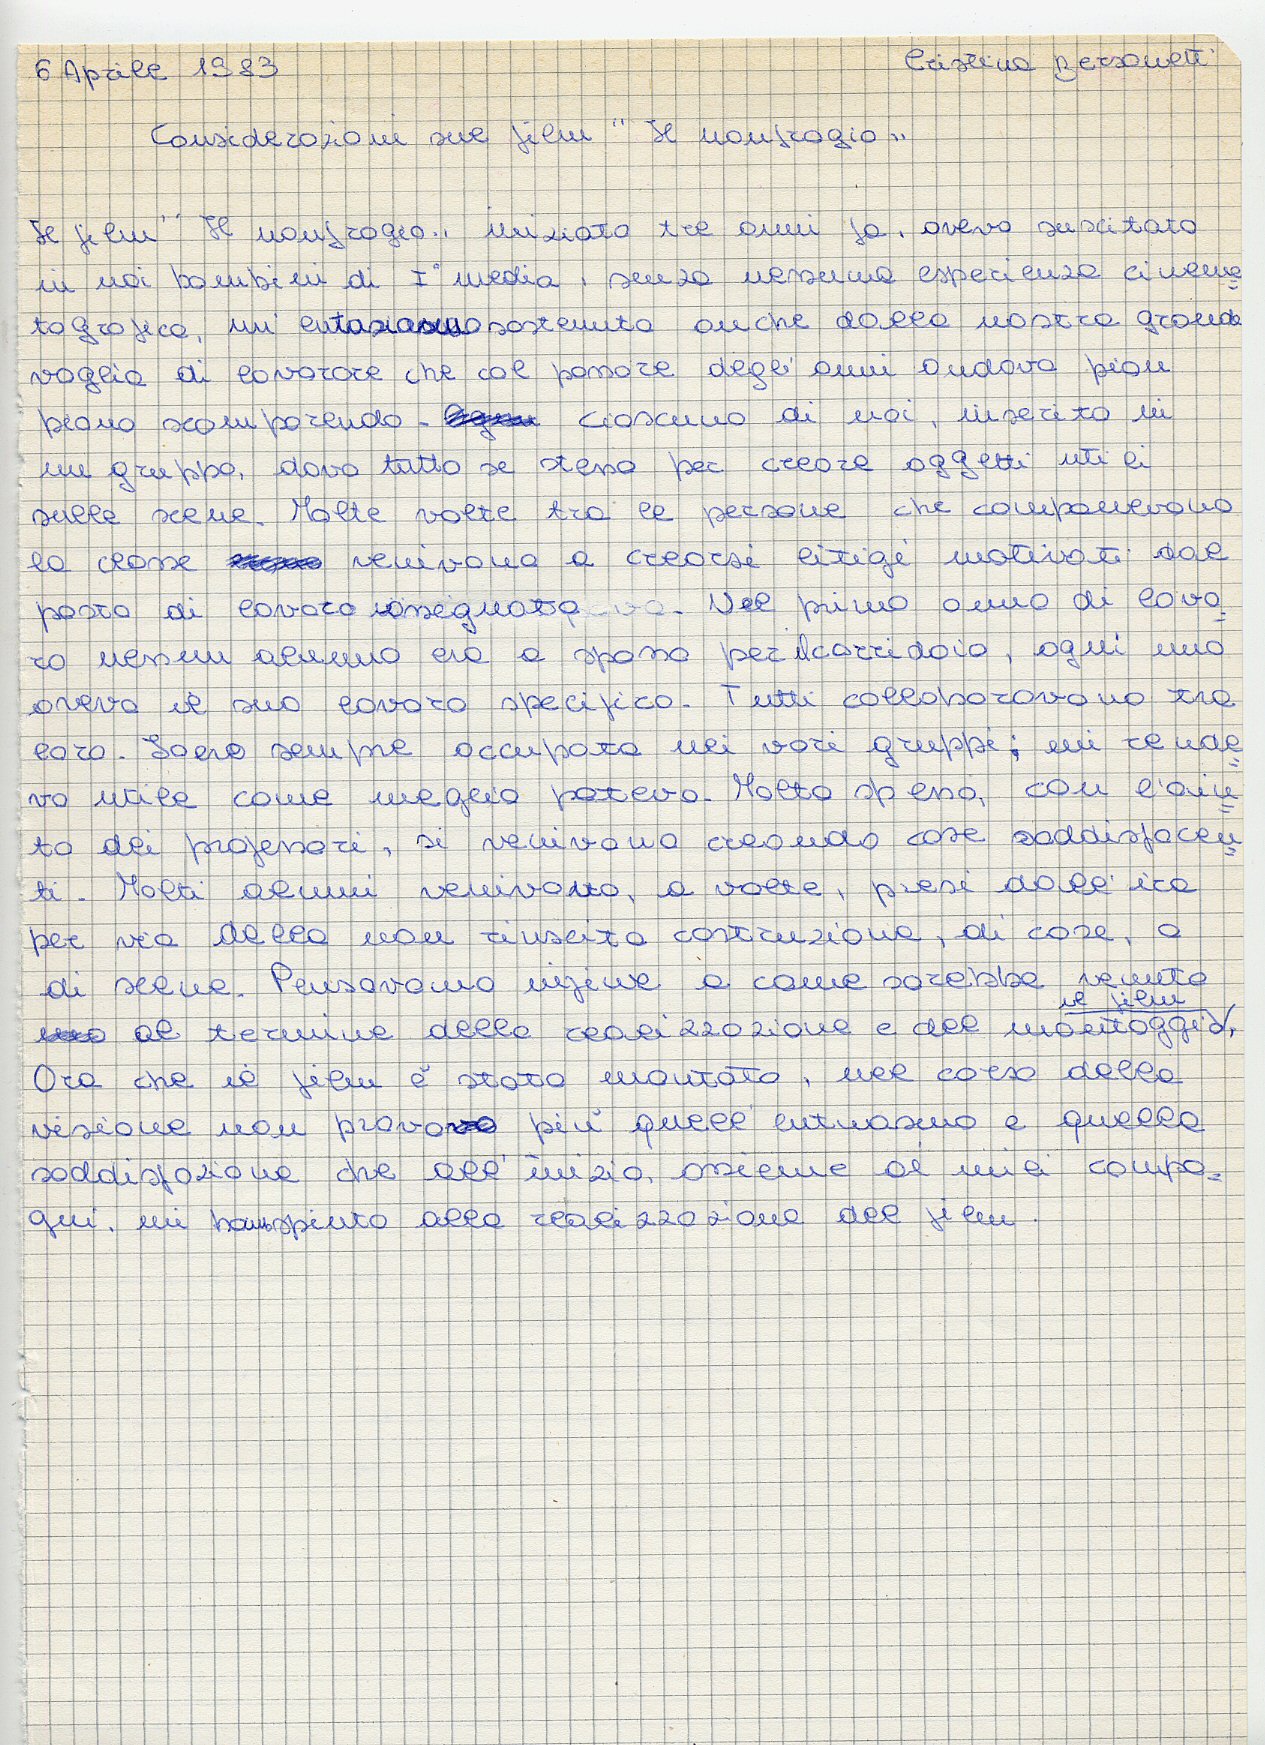 6 Aprile 1983 Cristina Bersanetti
Considerazioni sul film " Il naufragio "
Il film " Il naufragio " iniziato tre anni fa, aveva suscitato
in noi bambini di I° media, senza nessuna esperienza cinema=
tografica, un' entusiasmo sostenuto anche dalla nostra grande
voglia di lavorare che col passare degli anni andava pian
piano scomparendo. Ciascuno di noi, inserito in
un gruppo, dava tutto se stesso per creare oggetti utili
sulle scene. Molte volte tra le persone che componevano
la classe venivano a crearsi litigi motivati dal
posto di lavoro assegnato. Nel primo anno di lavo=
ro nessun alunno era a spasso per il corridoio, ogni uno
aveva il suo lavoro specifico. Tutti collaboravano tra
loro. Io ero sempre occupata nei vari gruppi; mi rende=
vo utile come meglio potevo. Molto spesso, con l'aiu=
to dei professori, si venivano creando cose soddisfacen=
ti. Molti alunni venivano, a volte, presi dall'ira
per via della non riuscita costruzione, di cose, o
di scene. Pensavamo infine a come sarebbe venuto
il film
al termine della realizzazione e del montaggio.
Ora che il film è stato montato, nel corso della
visione non provo più quell'entusiasmo e quella
soddisfazione che all'inizio, assieme ai miei compa=
gni, mi hanno spinto alla realizzazione del film.